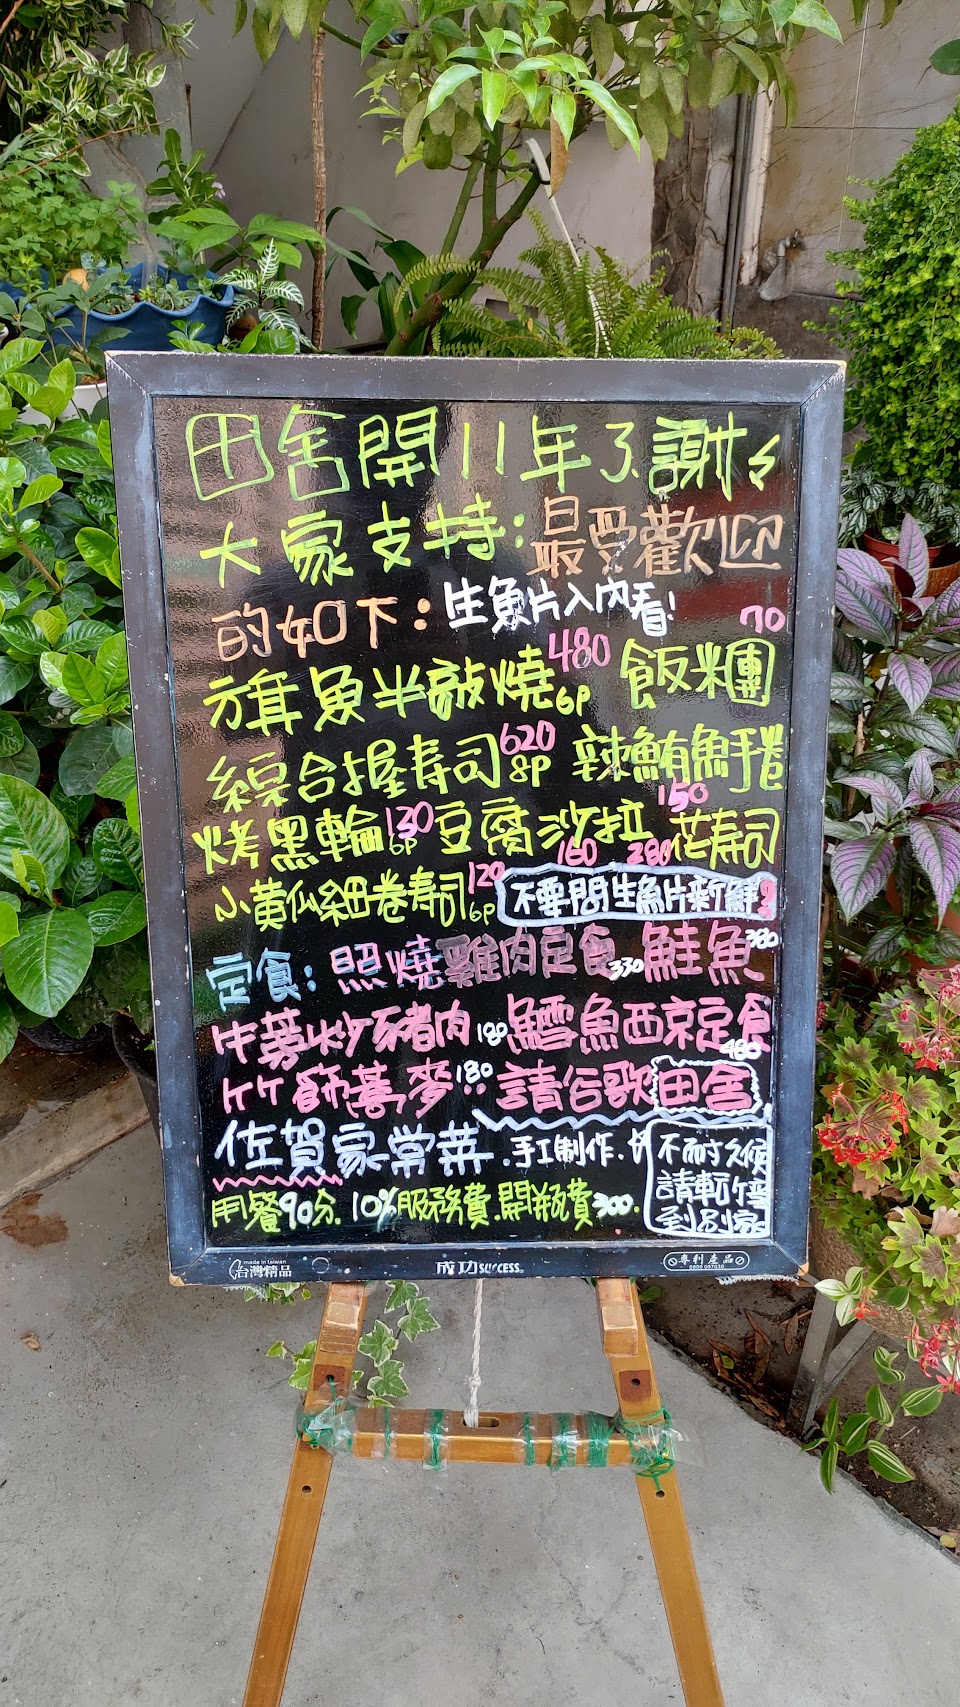 田舍開11年了謝謝々
大家支持:最受歡迎
的如下:生魚片入內看!
70
旗魚半敲燒480 6p 飯糰
綜合握壽司620 8p 辣鮪魚手捲
150
烤黑輪130 6p 豆腐沙拉 花壽司
160 280
小黃瓜細卷壽司120 6p 不要問生魚片新鮮
定食:照燒雞肉定食330 鮭魚380
牛蒡炒豬肉180 鱈魚西京定食480
竹籠蕎麥180 請谷歌田舍
佐賀家常菜.手工制作.
不耐久候
請轉彎
到別家
用餐90分.10%服務費.開瓶費300.
made in taiwan
台灣精品
成功SUCCESS
專利產品
0800 007030